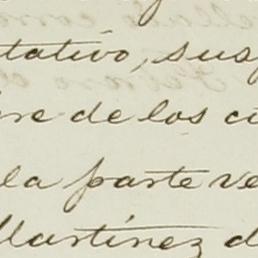 tativo, sus
re de los ci
la parte ve
Martinez d